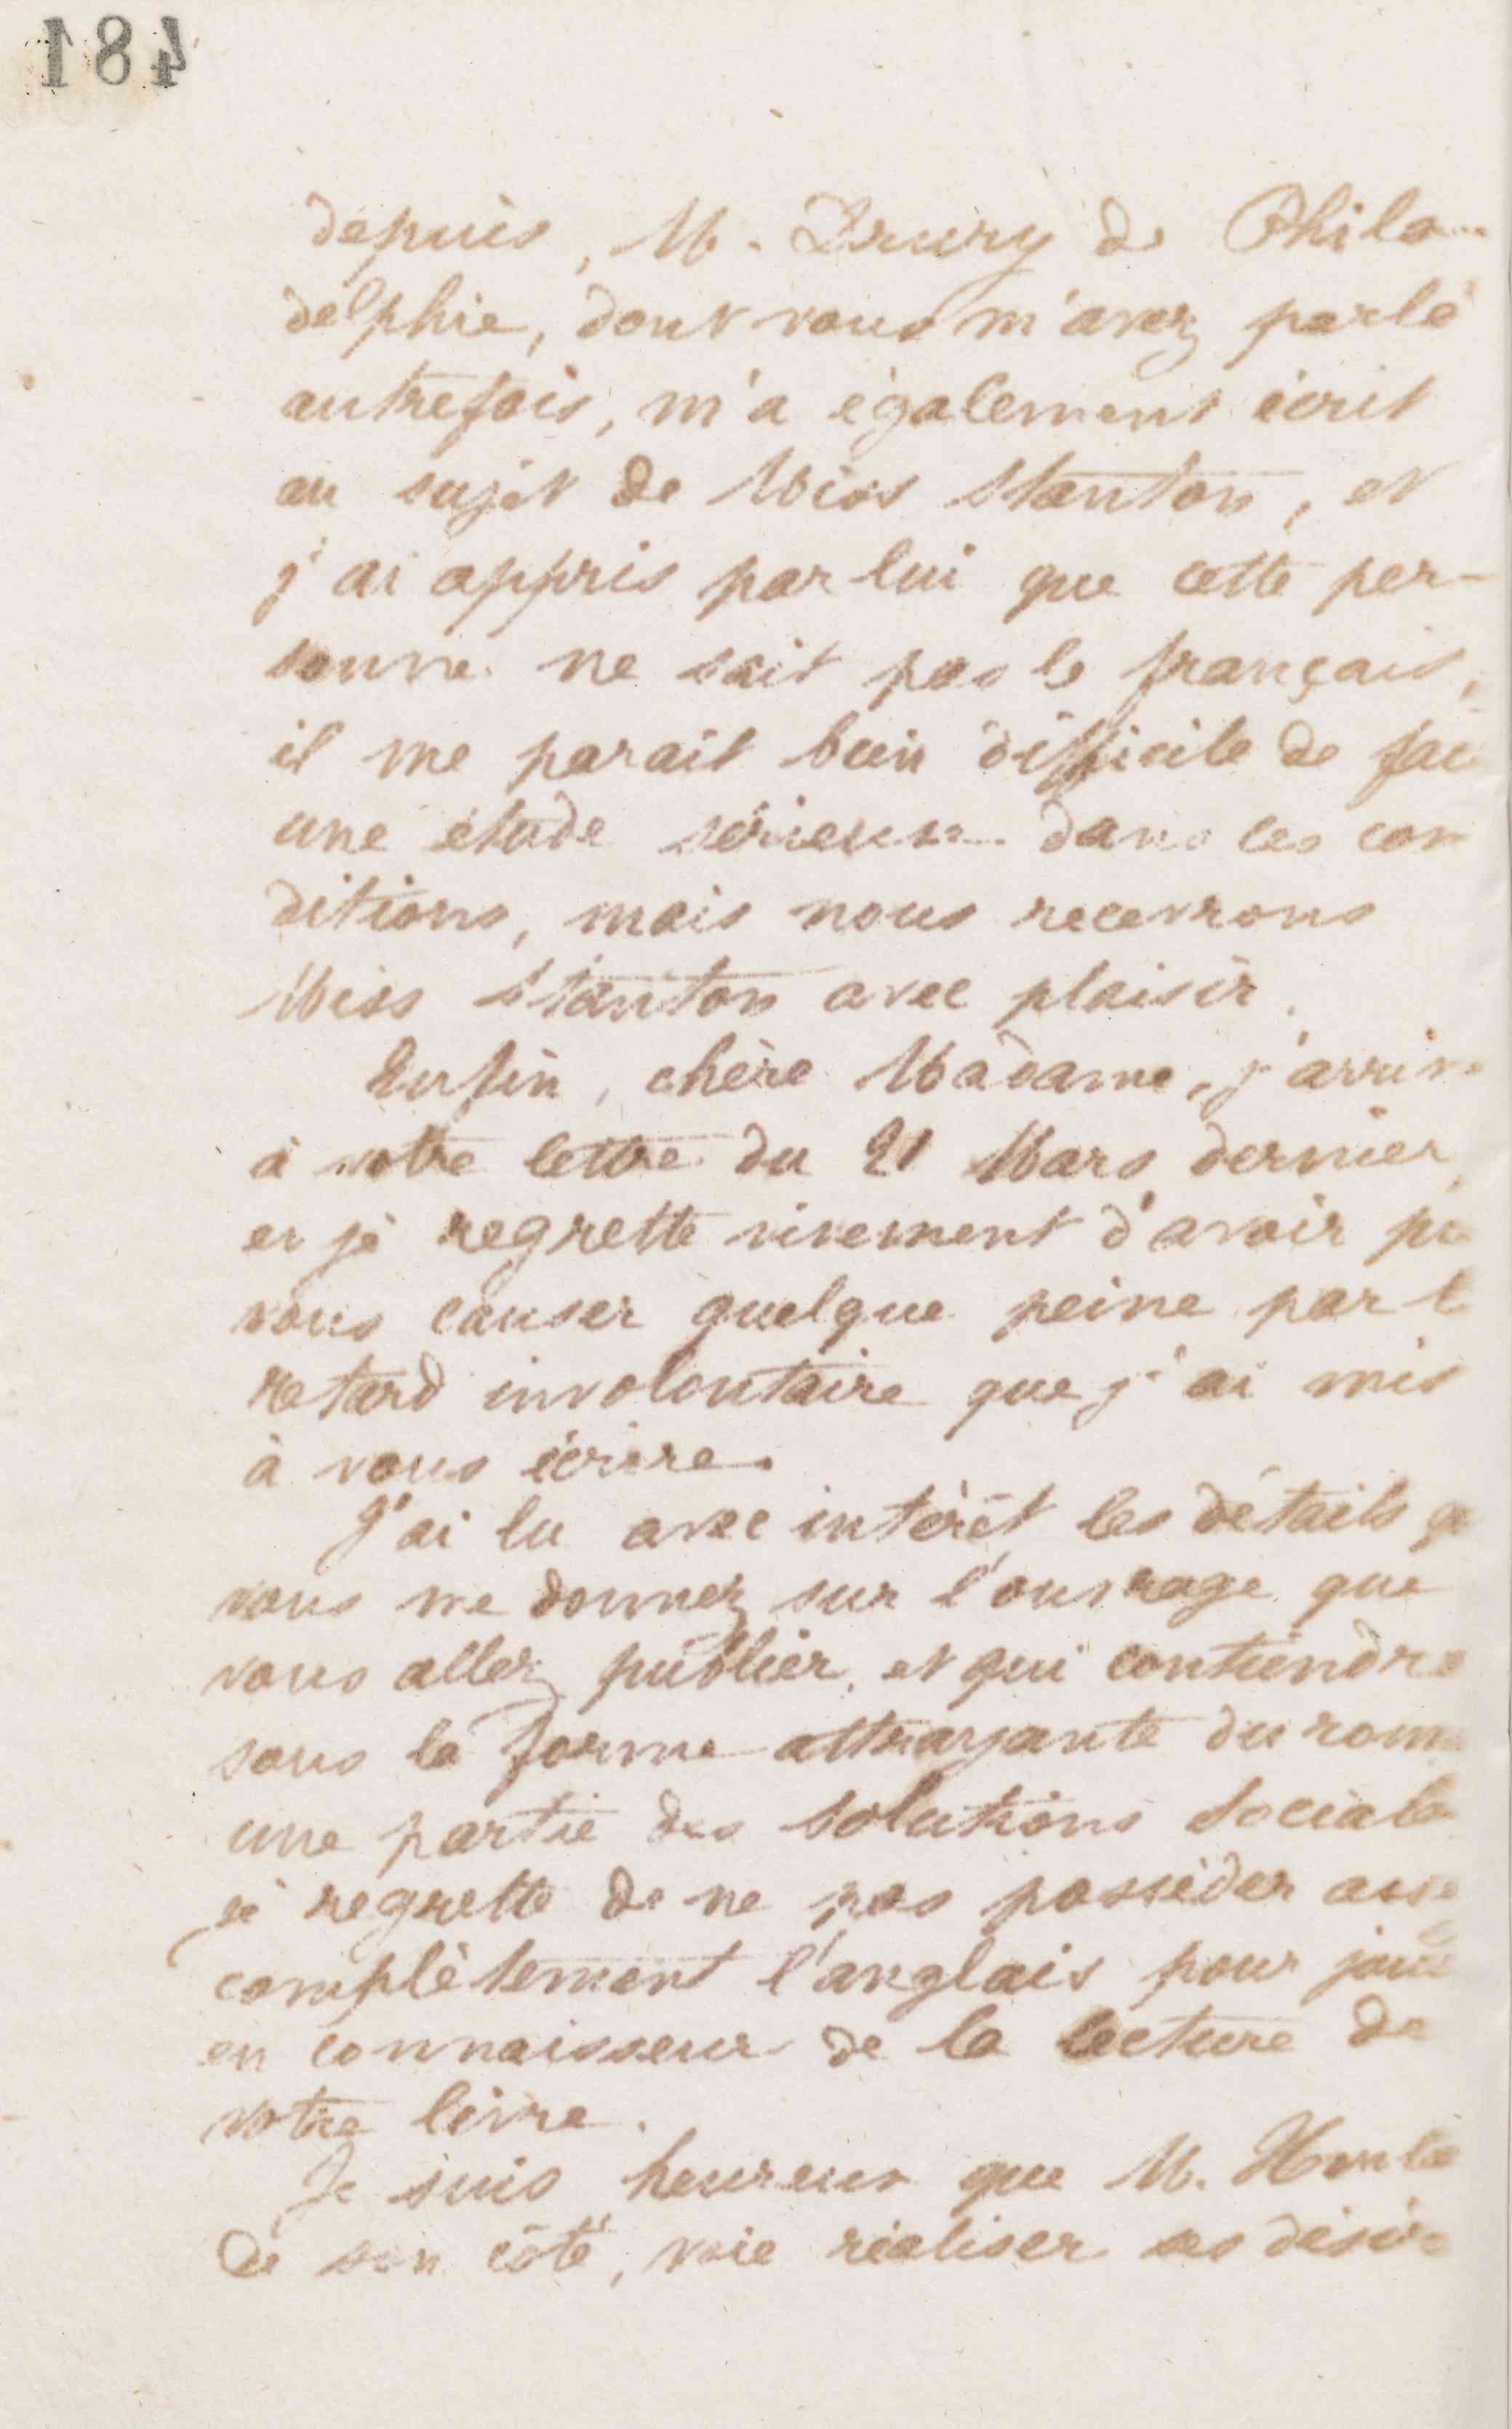 184
depuis, M. Drury de Phila-
delphie, dont vous m'avez parlé
autrefois, m'a également écrit
au sujet de Miss Stanton, et
j'ai appris par lui que cette per-
sonne ne sait pas le français,
il me parait bien difficile de fai
une étude sérieuse dans ces con
ditions, mais nous recevrons
Miss Stanton avec plaisir.
Enfin, chère Madame, j'arrive
à votre lettre du 21 Mars dernier,
et je regrette vivement d'avoir pu
vous causer quelque peine par l
retard involontaire que j'ai mis
à vous écrire.
J'ai lu avec intérêt les détails q
vous me donnez sur l'ouvrage que
vous allez publier, et qui contiendra
sous la forme attrayante du rom
une partie des Solutions Sociale
je regrette de ne pas posséder asse
complètement l'anglais pour joui
en connaisseur de la lecture de
votre livre.
Je suis heureux que M.
de son côté, voie réaliser ses désirs